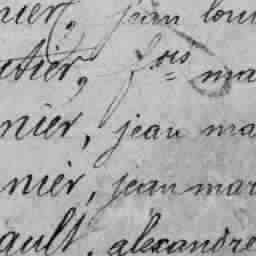 nier, jean loui
utier, f.ois ma
nier, jean ma
nier, jean mar
ault, alexandre